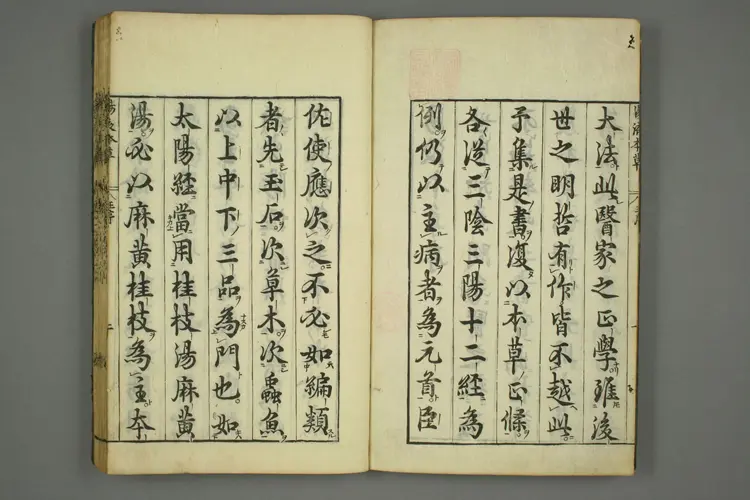 大法此醫家之正學雖後
世之明哲有作皆不越此
予集是書復以本草正條
各從三陰三陽十二經為
例仍以主病者為元首臣
佐使應次之不必如編類
者先玉石次草木次蟲魚
以上中下三品為門也如
太陽經當用桂枝湯麻黃
湯必以麻黃桂枝為主本